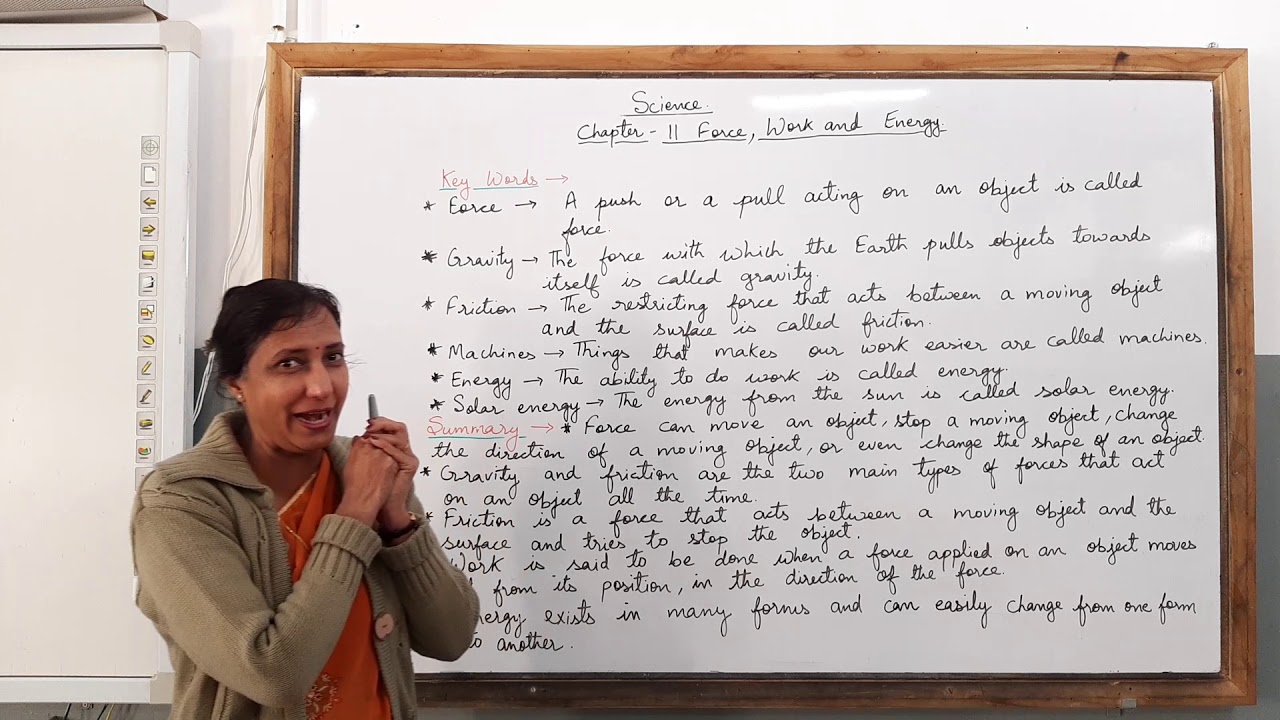 Science.
Chapter - 11 Force, Work and Energy.
Key Words →
* Force → A push or a pull acting on an object is called
force.
* Gravity → The force with which the Earth pulls objects towards
itself is called gravity.
* Friction → The restricting force that acts between a moving object
and the surface is called friction.
* Machines → Things that makes our work easier are called machines.
* Energy → The ability to do work is called energy.
* Solar energy → The energy from the sun is called solar energy.
Summary → * Force can move an object, stop a moving object, change
the direction of a moving object, or even change the shape of an object.
* Gravity and friction are the two main types of forces that act
on an object all the time.
* Friction is a force that acts between a moving object and the
surface and tries to stop the object.
Work is said to be done when a force applied on an object moves
from its position, in the direction of the force.
nergy exists in many forms and can easily change from one form
to another.